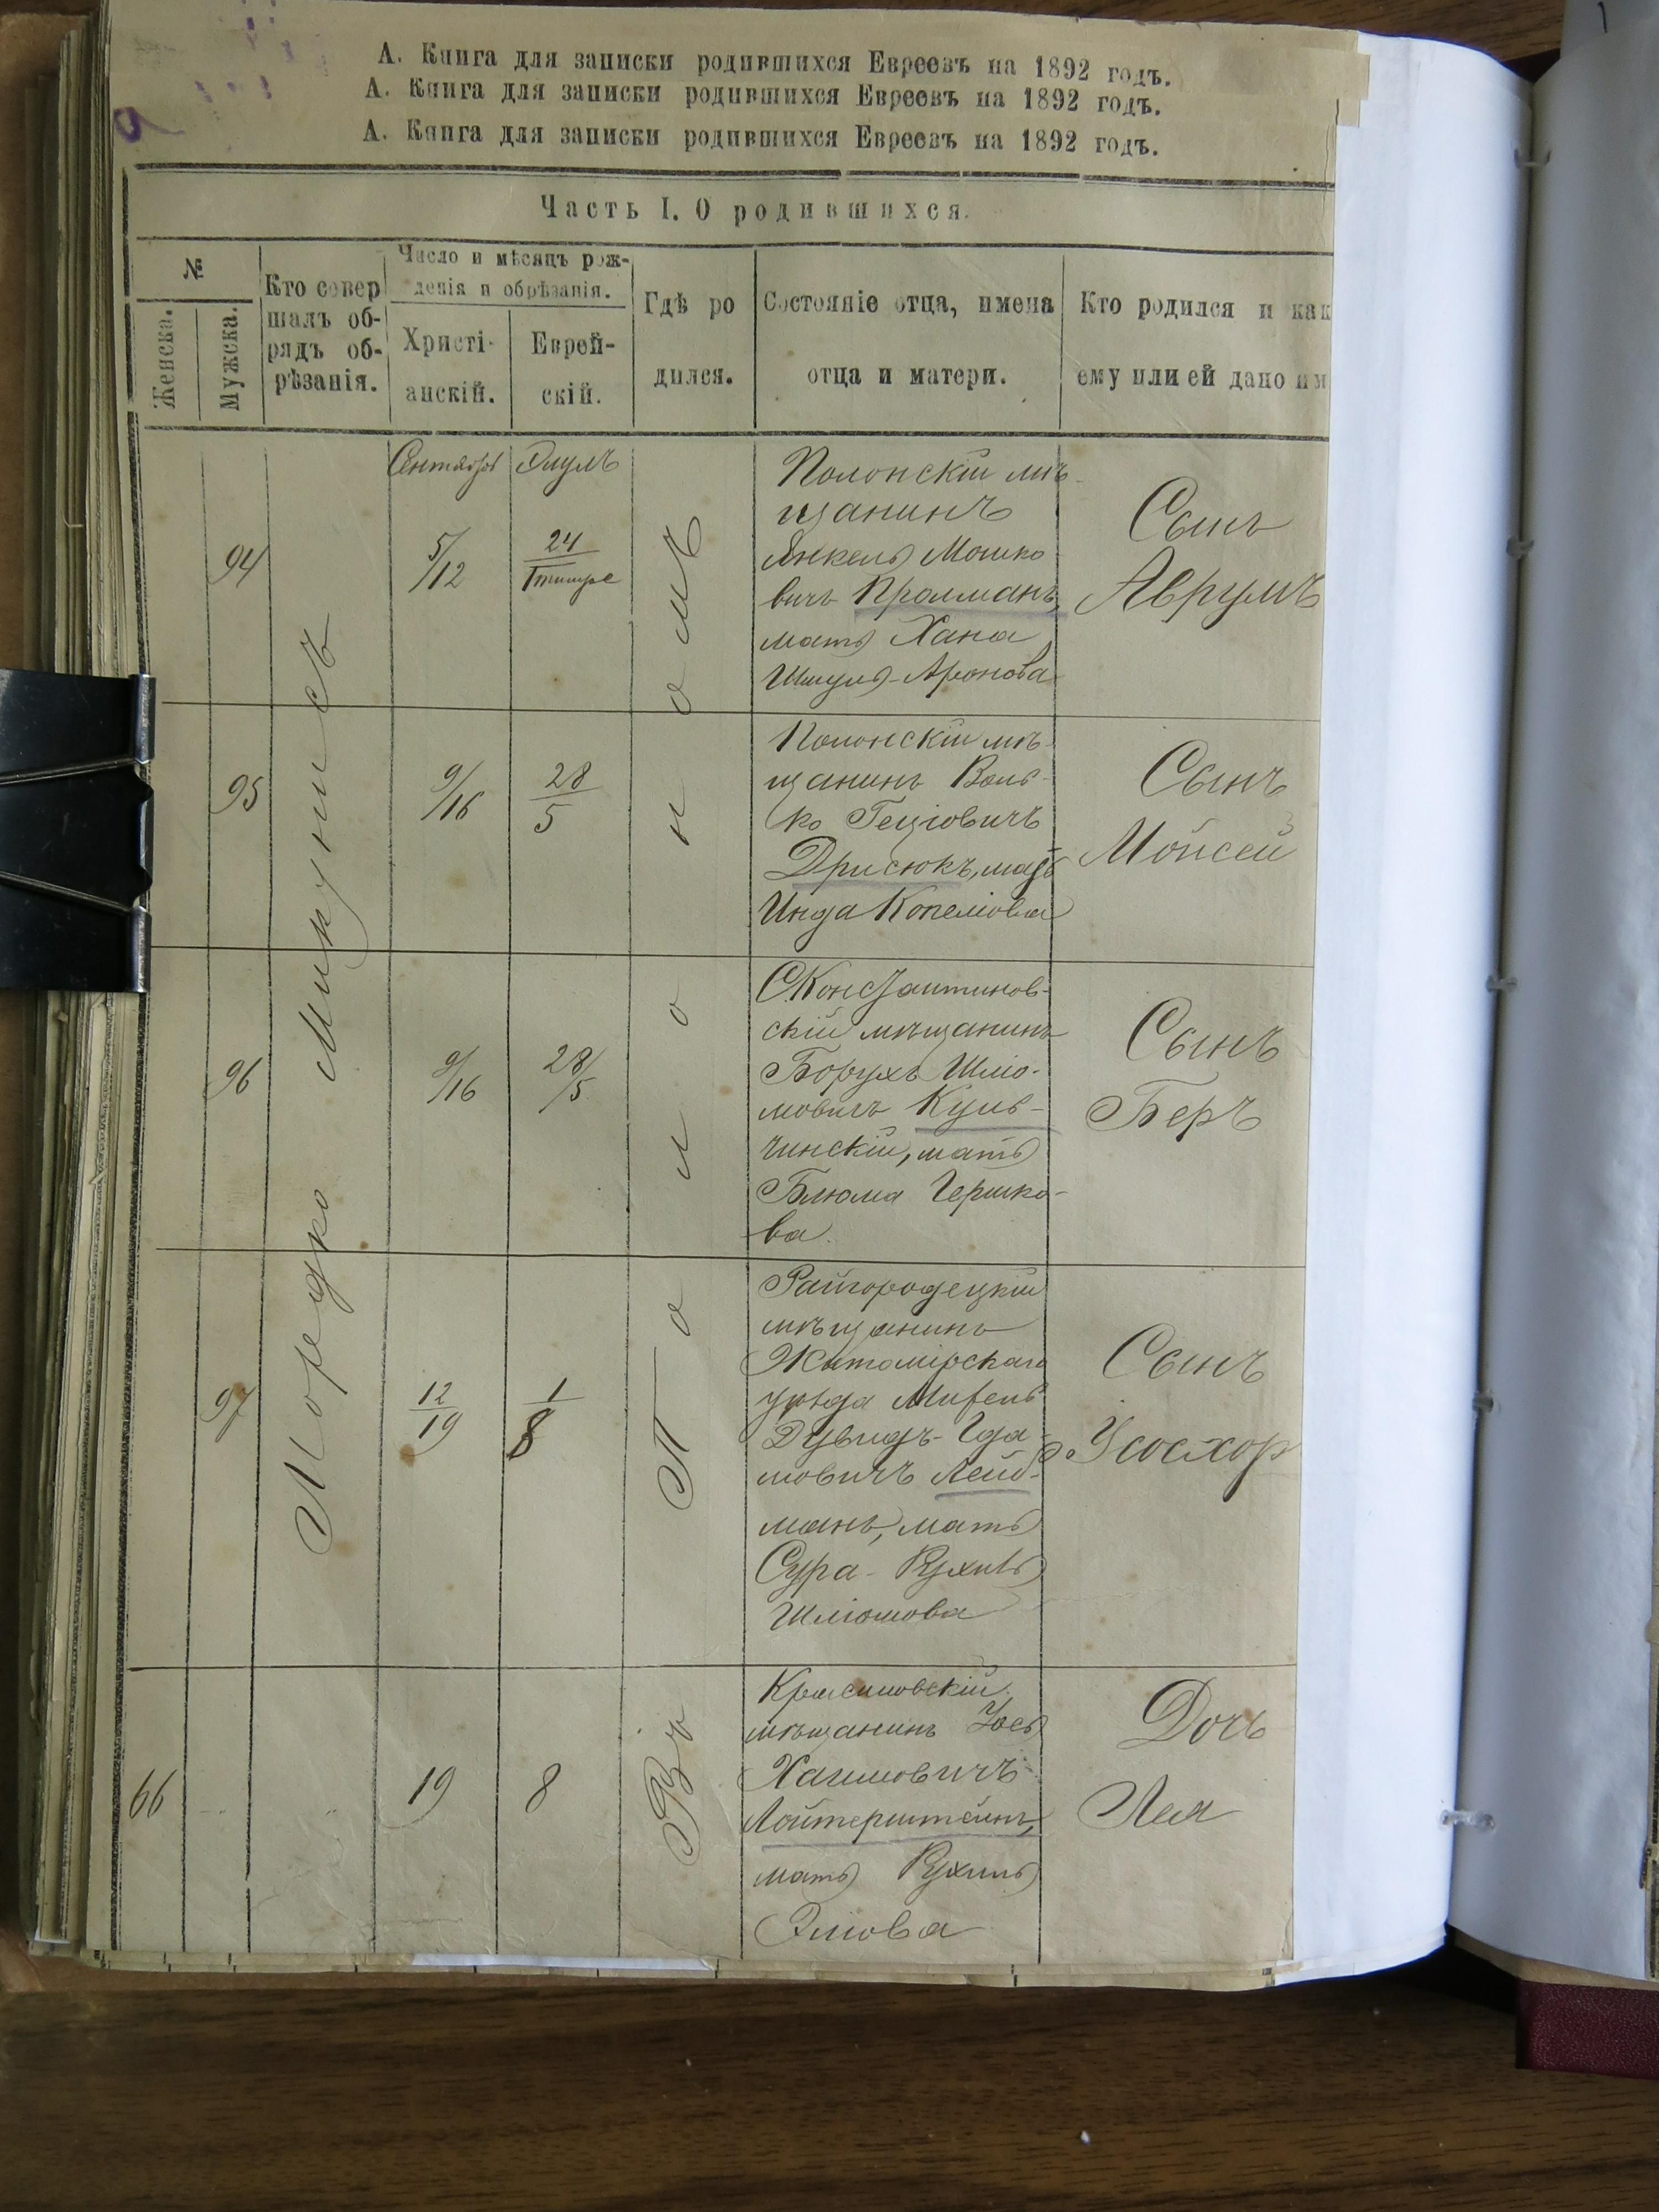 А. Книга для записки родившихся Евреевъ на 1892 годъ.
А. Книга для записки родившихся Евреевъ на 1892 годъ.
А. Книга для записки родившихся Евреевъ на 1892 годъ.
Часть I. О родившихся.
№
Женска.
Мужска.
Кто совер
шалъ об-
рядъ об-
рѣзанія.
Число и мѣсяцъ рож-
денія и обрѣзанія.
Христі-
анскій.
Еврей-
скій.
Гдѣ ро
дился.
Состояніе отца, имена
отца и матери.
Кто родился и как
ему или ей дано им
Мордко Микунисъ
Въ Полономъ
Сентябрь
Элулъ
94
5/12
24
Тишре
Полонскій мѣ-
щанинъ
Янкель Мошко
вичъ Пролманъ,
мать Хана
Шмуль-Аронова
Сынъ
Аврумъ
95
9/16
28
5
Полонскій мѣ-
щанинъ Воль-
ко Гецiовичъ
Дрисюкъ, мать
Инда Копелiовна
Сынъ
Мойсей
96
9/16
28/5
С.Константинов-
скій мѣщанинъ
Борухъ Шлiо-
мовичъ Куль-
чинскій, мать
Блюма Гершко-
ва.
Сынъ
Беръ
97
12
19
1
8
Райгородецкій
мѣщанинъ
Житомірскаго
уѣзда
Дувидъ-
мовичъ Лейб-
манъ, мать
Сура-Рухль
Шлiомова
Сынъ
Усосхор
66
19
8
Красиловскій
мѣщанинъ Іось
Хаимовичъ
Лойтерштейнъ,
мать Рухль
Элiова
Дочь
Лея